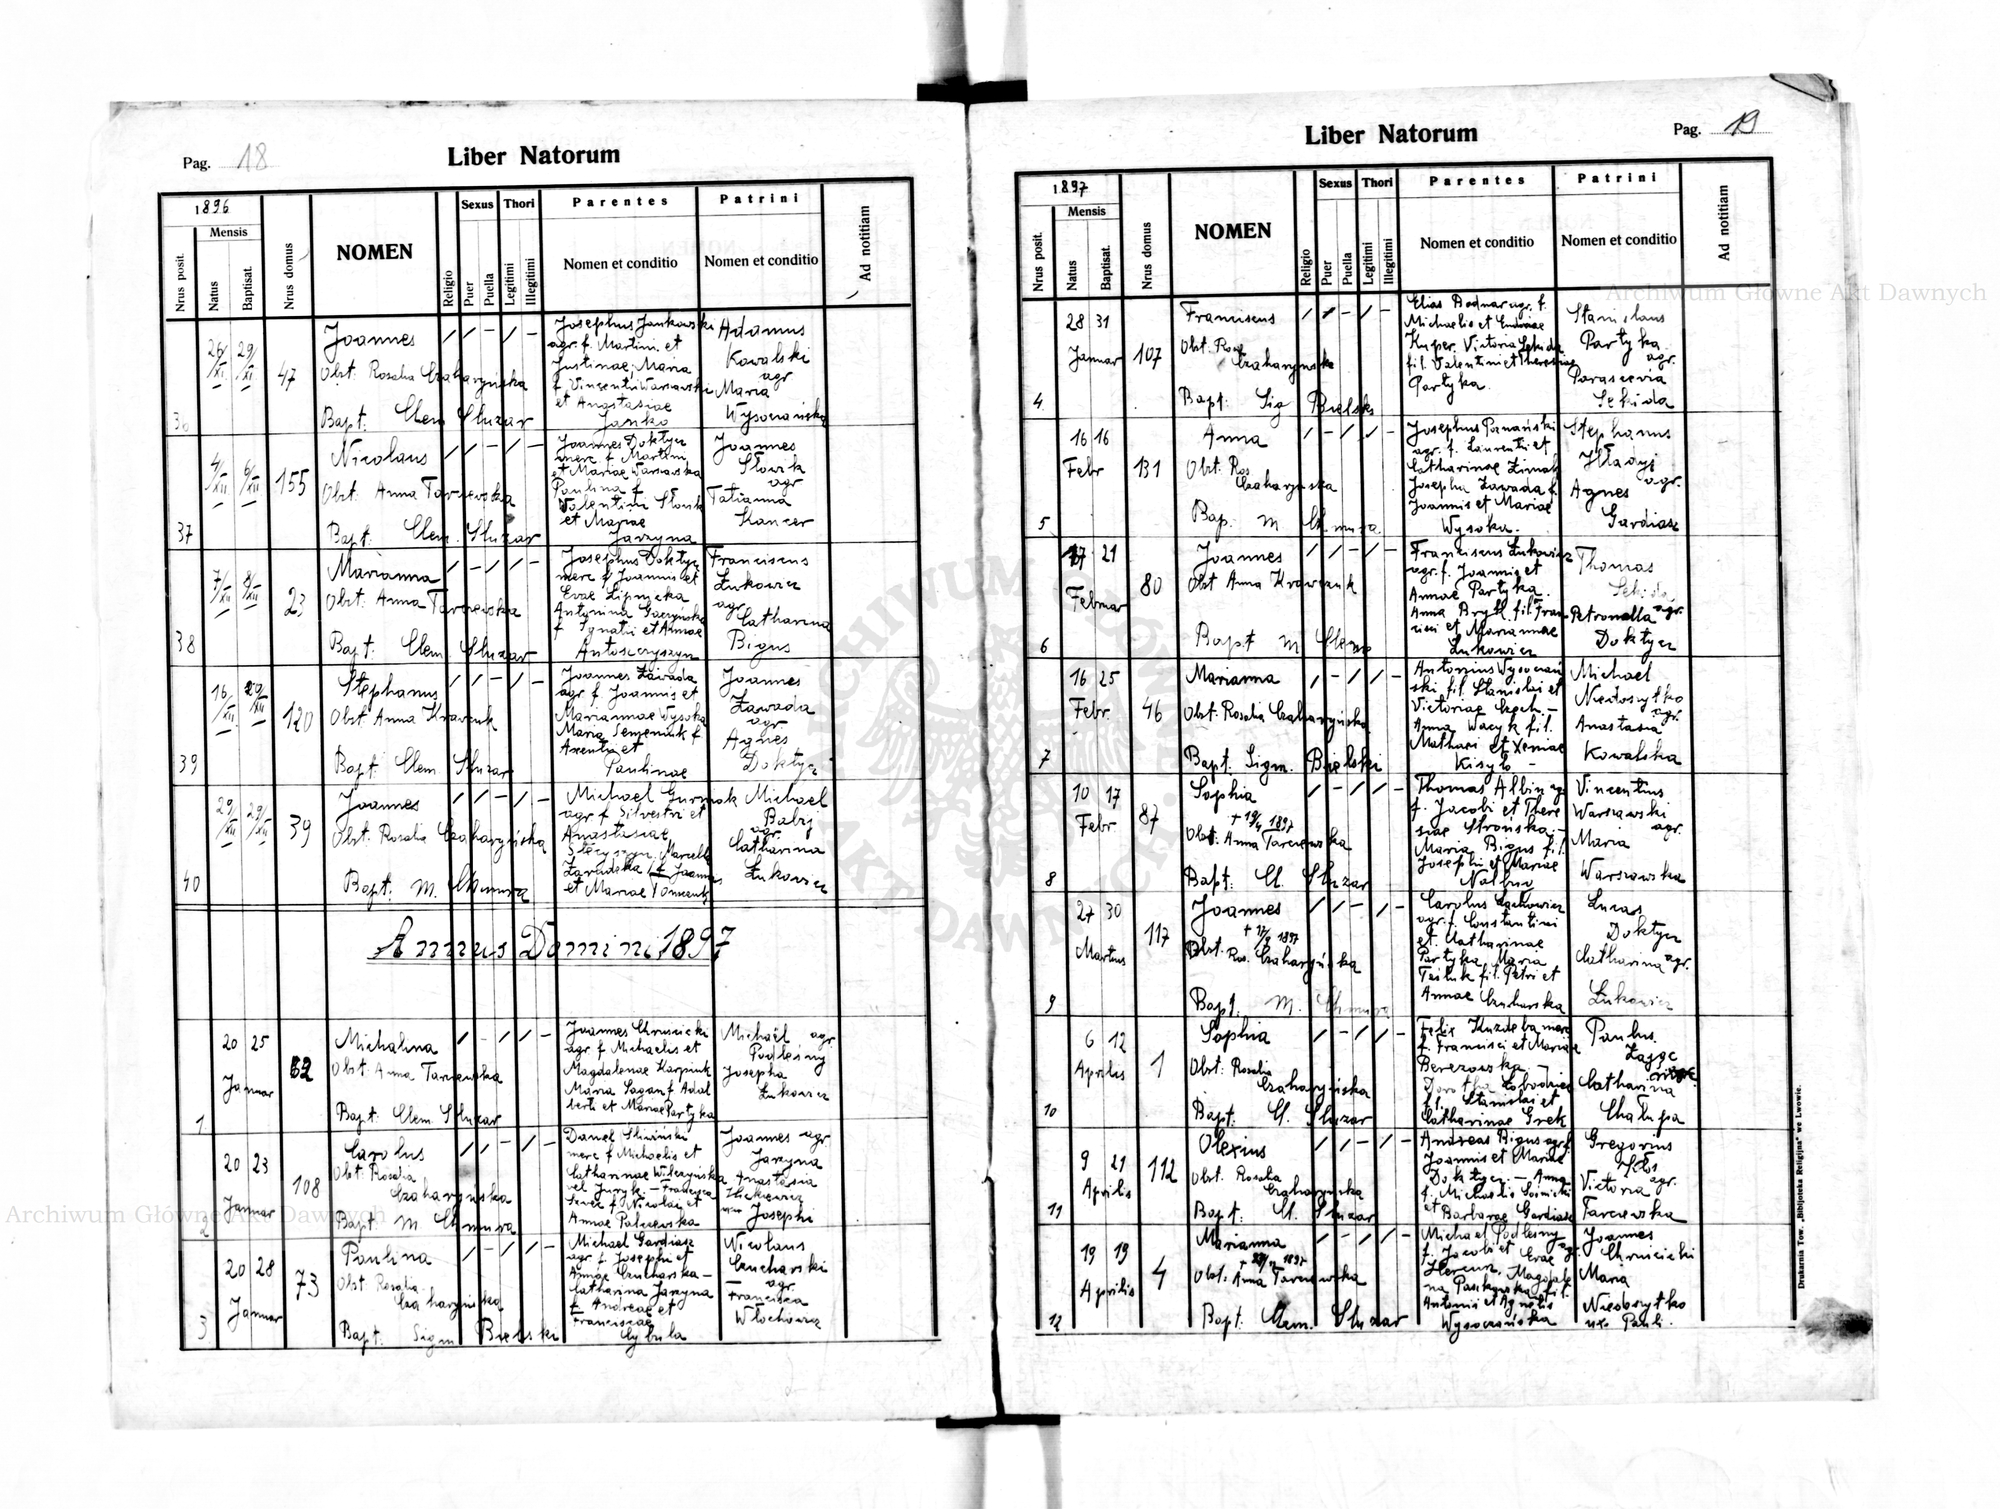 Pag. 18
Liber Natorum
1896
Mensis
Nrus posit.
Natus
Baptisat.
Nrus domus
NOMEN
Religio
Sexus
Puer
Puella
Thori
Legitimi
Illegitimi
Parentes
Nomen et conditio
Patrini
Nomen et conditio
Ad notitiam
36
26/XI 29/XI
47
Joannes
Obst. Rosalia Czaharyńska
Bapt. Clem Sluzar
Josephus Jankowski
agr. f. Martini et
Justinae; Maria
f. Vincentii Warsawski
et Anastasiae
Janko
Adamus
Kowalski
agr
Maria
Wysoczańska
37
4/XII 6/XII
155
Nicolaus
Obst. Anna Tarczewska
Bapt. Clem. Sluzar
Joannes Doktycz
merc f. Martini
et Mariae Warsawska
Paulina f.
Valentini Słowik
et Mariae
Jarzyna
Joannes
Słowik
agr
Tatianna
Kancer
38
7/XII 8/XII
23
Marianna
Obst. Anna Tarczewska
Bapt. Clem. Sluzar
Josephus Doktycz
merc f. Joannis et
Evae Lipnicka
Antonina Gaczyńska
f Ignatii et Annae
Antoszczyszyn
Franciscus
Łukowicz
agr
Catharina
Bigus
39
16/XII 20/XII
120
Stephanus
Obst. Anna Krawczuk
Bapt. Clem. Sluzar
Joannes Zawada
agr f. Joannis et
Mariannae Wysoka
Maria Semeniuk f.
Axenty et
Paulinae
Joannes
Zawada
agr
Agnes
Doktycz
40
29/XII 29/XII
39
Joannes
Obst. Rosalia Czaharyńska
Bapt. M. Chmura
Michael Gurniak
agr f. Silvestri et
Anastasiae
Joannis
et Mariae Tomczuk
Michael
Babij
agr.
Catharina
Łukowicz
Annus Domini 1897
1
20 25
Januar
62
Michalina
Obst. Anna Tarczewska
Bapt. Clem Sluzar
Joannes Chruścicki
agr f Michaelis et
Magdalenae Karpiuk
Maria Sagan f Adal
berti et Mariae Partyka
Michaël agr.
Podleśny
Josepha
Łukowicz
2
20 23
Januar
108
Carolus
Obst Rosalia
Czaharyńska
Bapt. M. Chmura
Daniel Śliwiński
merc f Michaelis et
Catharinae Wilczyńska
Nicolai et
Annae Palczewska
Joannes agr.
Jarzyna
Anastasia
Ilickiewicz
uxor Josephi
3
20 28
Januar
73
Paulina
Obst Rosalia
Czaharyńska
Bapt. Sigm Bielski
Michael Gardiasz
agr f Josephi et
Annae Czucharska –
Catharina Jarzyna
f. Andreae et
Franciscae
Cybula
Nicolaus
Czucharski
agr.
Franciska
Włochowicz
Liber Natorum
Pag. 19
1897
Mensis
Nrus posit.
Natus
Baptisat.
Nrus domus
NOMEN
Religio
Sexus
Puer
Puella
Thori
Legitimi
Illegitimi
Parentes
Nomen et conditio
Patrini
Nomen et conditio
Ad notitiam
4
28 31
Januar
107
Franciscus
Obst. Rosa
Czaharyńska
Bapt. Sig Bielski
Elias Bodnar agr. f.
Michaelis et Eudoxiae
Kuper, Victoria Sekida
fil. Valentini et Theresiae
Partyka.
Stanislaus
Partyka
agr.
Parascevia
Sekida
5
16 16
Febr
131
Anna
Obst. Ros
Czaharyńska
Bap. M Chmura
Josephus Poznański
agr. f. Laurentii et
Catharinae Zimak
Josepha Zawada f.
Joannis et Mariae
Wysoka.
Stephanus
Hładyj
agr.
Agnes
Gardiasz
6
17 21
Februar
80
Joannes
Obst Anna Krawczuk
Bapt M
Franciscus Łukowicz
agr. f. Joannis et
Annae Partyka.
Anna Bryk fil Fran
cisci et Mariannae
Łukowicz
Thomas
Sekida
agr.
Petronella
Doktycz
7
16 25
Febr.
46
Marianna
Obst. Rosalia Czaharyńska
Bapt. Sigm. Bielski
Antonius Wysoczań
ski fil. Stanislai et
Victoriae Czech. –
Anna Wacyk fil.
Mathaei et Xeniae
Kisyło –
Michael
Niedoszytko
agr.
Anastasia
Kowalska
8
10 17
Febr
87
Sophia
+ 19/4 1897
Obst. Anna Tarczewska
Bapt. Cl. Sluzar
Thomas Albin agr
f. Jacobi et There
siae Strońska. –
Maria Bigus fil.
Josephi et Mariae
Vincentius
Warszawski
agr.
Maria
Warszawska
9
27 30
Martius
117
Joannes
+ 17/8 1897
Obst. Ros. Czaharyńska
Bapt. M. Chmura
Carolus Czechowicz
agr. f. Constantini
et Catharinae
Partyka, Maria
fil. Petri et
Annae Czucharska
Lucas
Doktycz
agr.
Catharina
Łukowicz
10
6 12
Aprilis
1
Sophia
Obst. Rosalia
Czaharyńska
Bapt. Cl. Sluzar
Felix Kuzdeba merc
f. Francisci et Mariae
Berezowska –
Dorothea
f. Stanislai et
Catharinae Grek
Paulus
Zając
Catharina
Chałupa
11
9 21
Aprilis
112
Olexius
Obst. Rosalia
Czaharyńska
Bapt. Cl. Sluzar
Andreas Bigus agr f.
Joannis et Mariae
Doktycz. – Anna
f. Michaelis Łośnicki
et Barbarae Gardiasz
Gregorius
agr.
Victoria
Tarczewska
12
19 19
Aprilis
4
Marianna
Obst. Anna Tarczewska
Bapt. Clem. Sluzar
Michael Podleśny
f. Jacobi et Evae agr.
Magdale
na Pankowska fil.
Antonii et Agnetis
Wysoczańska
Joannes
Chruścicki
Maria
Niedoszytko
uxo Pauli.
Drukarnia Tow. „Biblioteka Religijna" we Lwowie.
Archiwum Główne Akt Dawnych
Archiwum Główne Akt Dawnych
ARCHIWUM GŁÓWNE AKT DAWNYCH